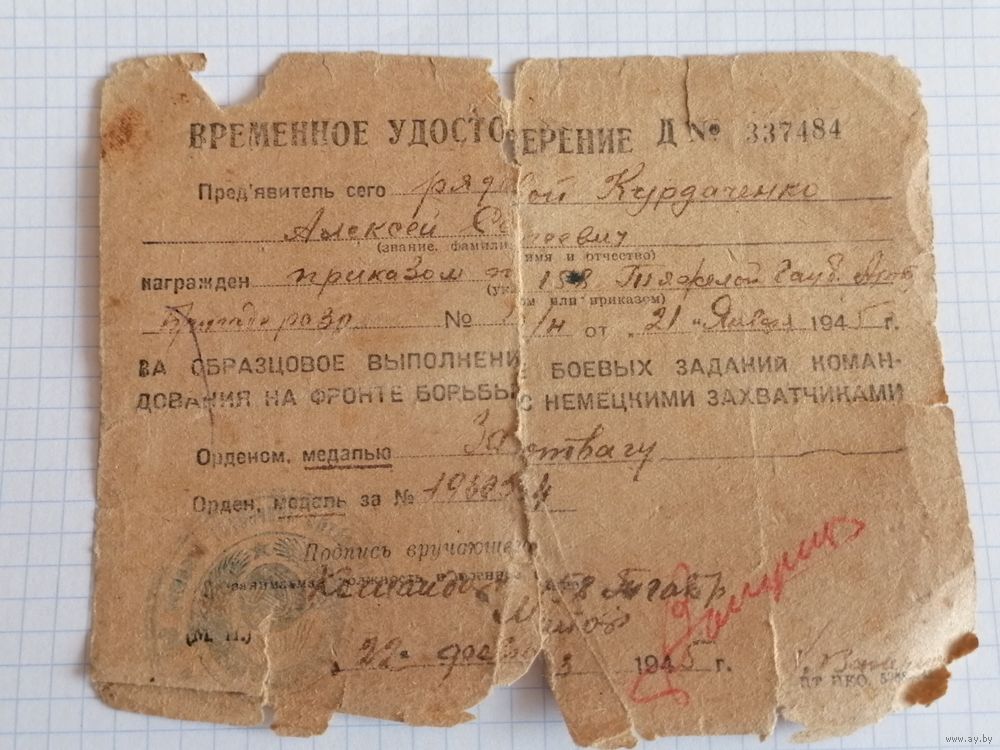 ВРЕМЕННОЕ УДОСТОВЕРЕНИЕ Д № 337484
Пред'явитель сего рядовой Курдаченко
Алексей Сергеевич
(звание, фамилия, имя и отчество)
награжден приказом 158 Тяжелой Гауб. Арт.
(указом или приказом)
Бригады № /н от „21" Января 1945 г.
ЗА ОБРАЗЦОВОЕ ВЫПОЛНЕНИЕ БОЕВЫХ ЗАДАНИЙ КОМАН-
ДОВАНИЯ НА ФРОНТЕ БОРЬБЫ С НЕМЕЦКИМИ ЗАХВАТЧИКАМИ
Орденом, медалью За отвагу
Орден, медаль за №
Подпись вручающего
должность
Командир 158 Тгабр
Майор
(М. П.)
„22" 1945 г.
www.ay.by